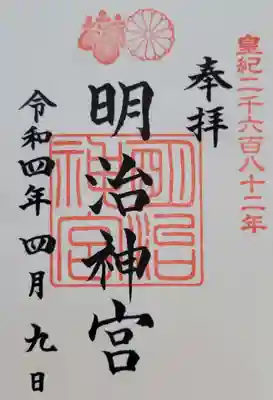 皇紀二千六百八十二年
奉拝
明治神宮
明治神宮
令和四年 四月 九日